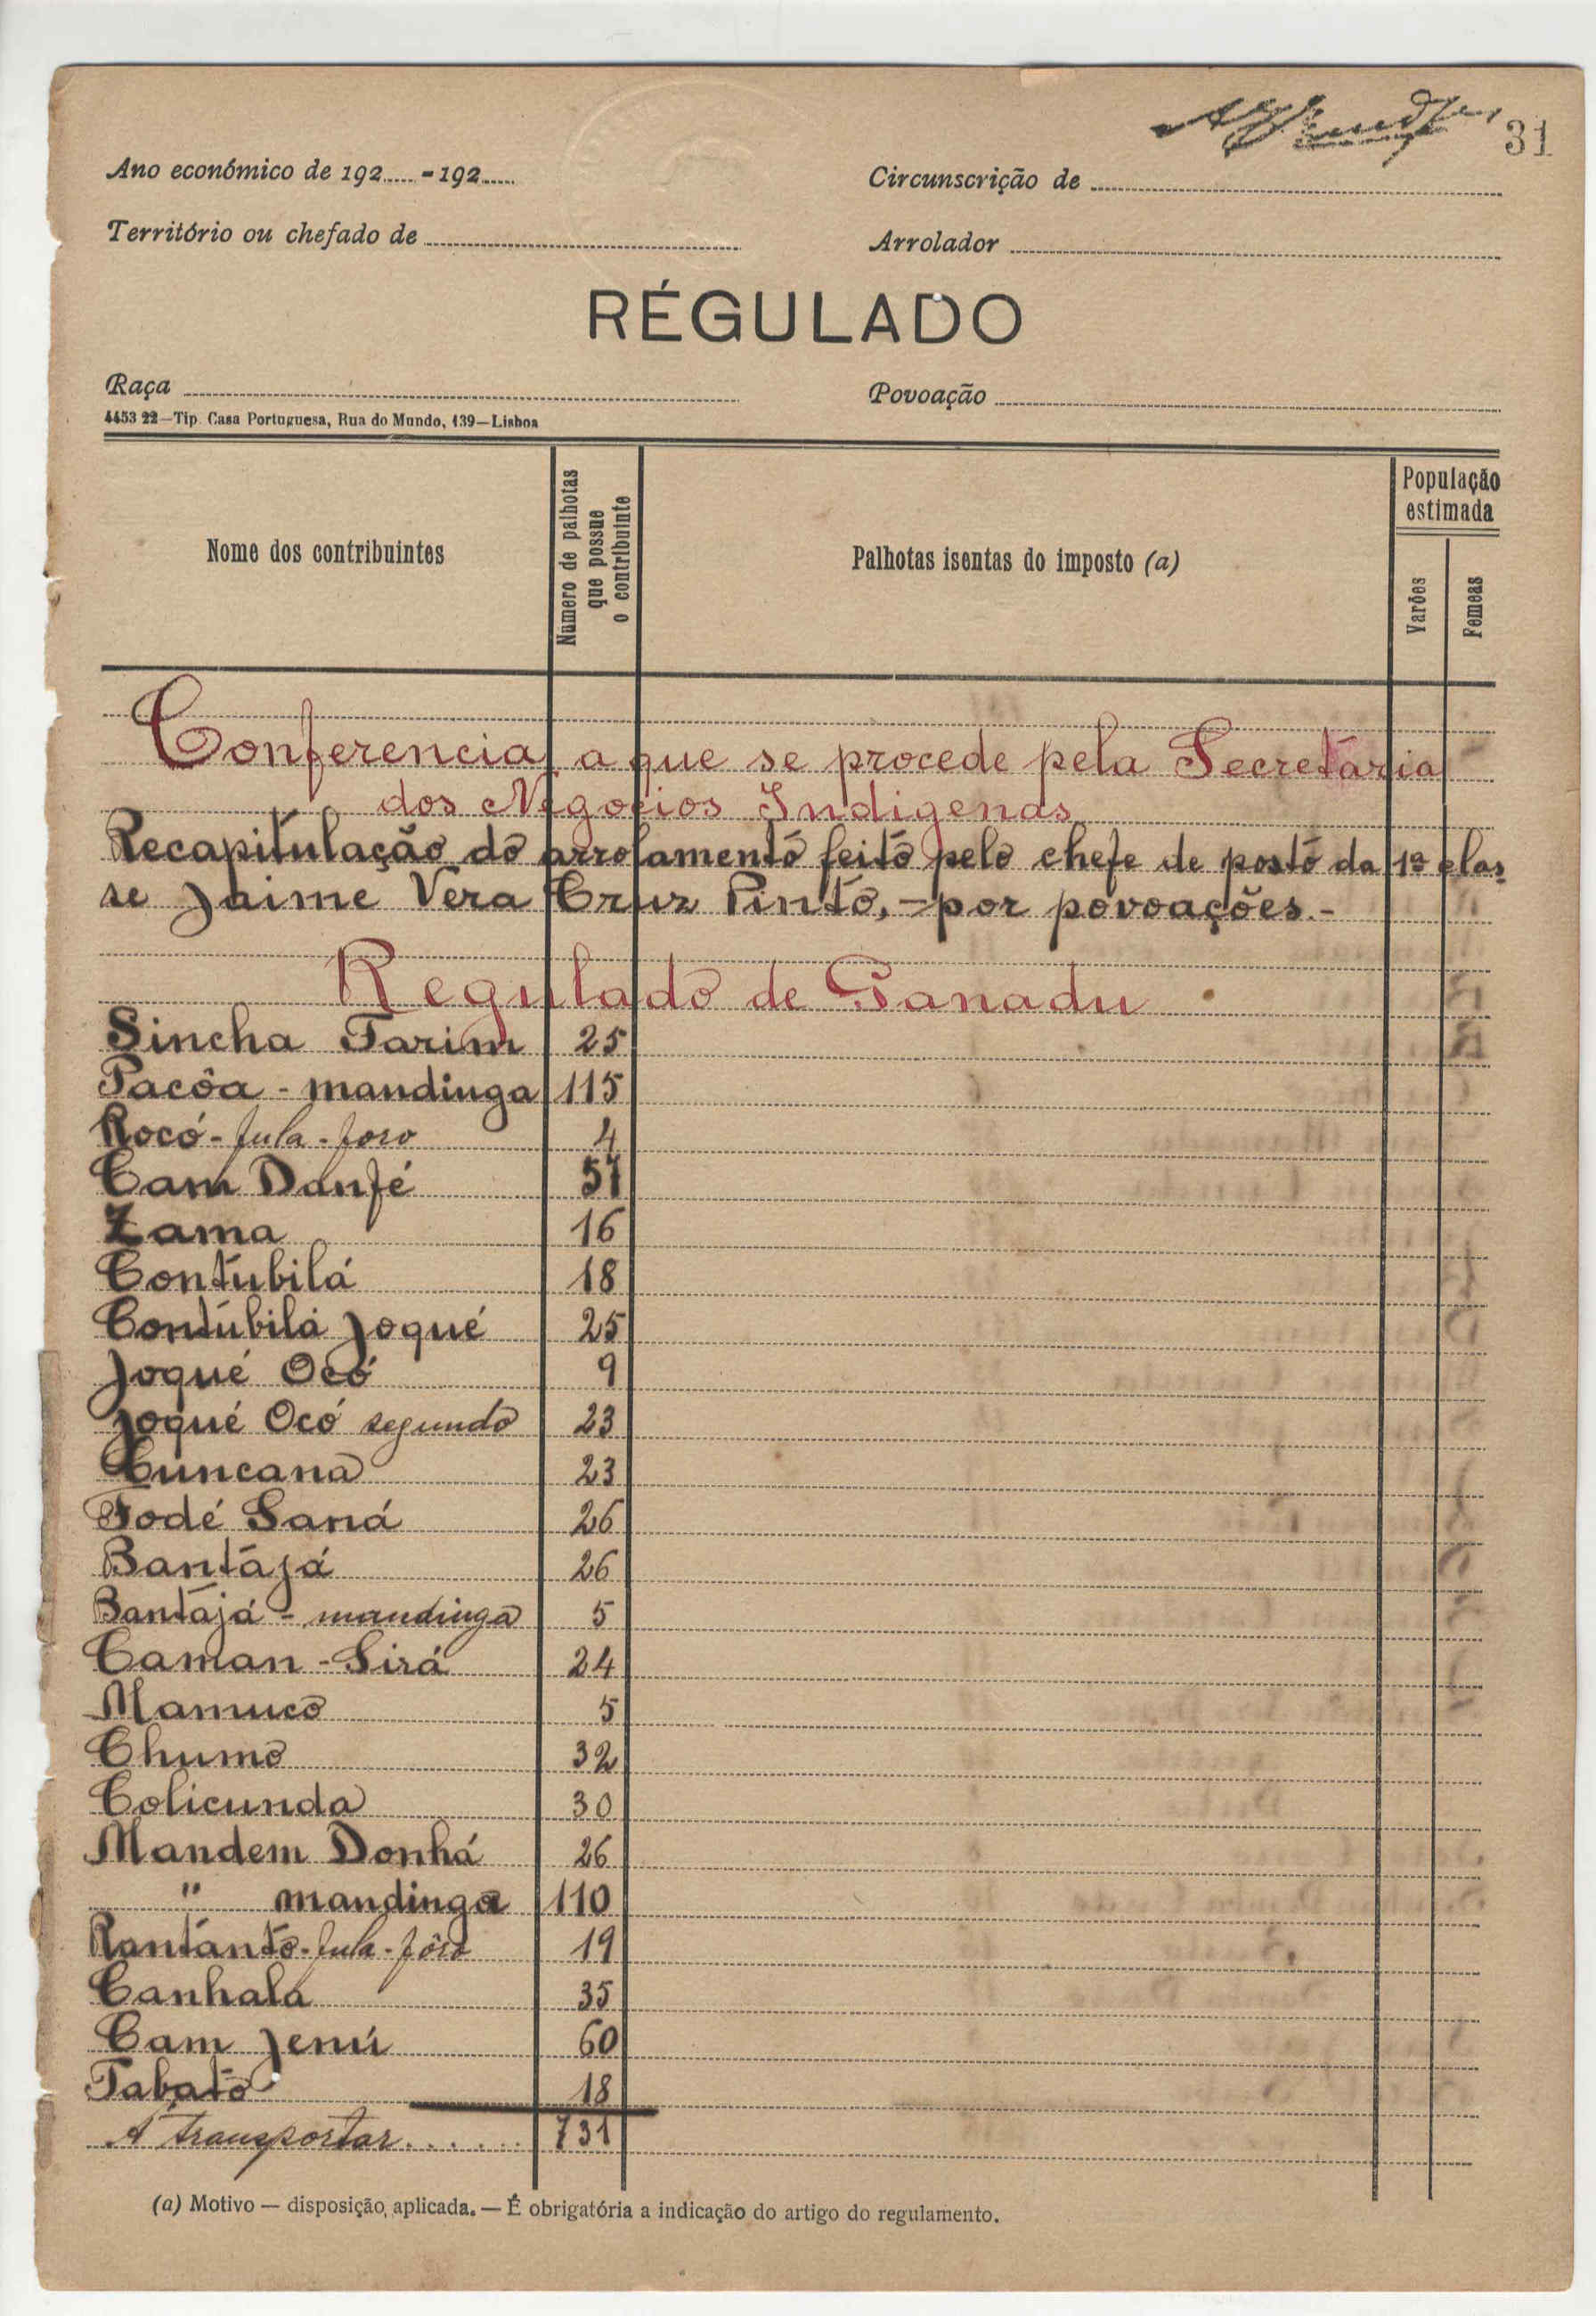 31
Ano económico de 192..... - 192.....
Circunscrição de
Território ou chefado de
Arrolador
RÉGULADO
Raça
Povoação
4453 22—Tip. Casa Portuguesa, Rua do Mundo, 139—Lisboa
Nome dos contribuintes
Número de palhotas que possue o contribuinte
Palhotas isentas do imposto (a)
População estimada
Varões
Femeas
Conferencia a que se procede pela Secretaria
dos Negocios Indigenas
Recapitulação do arrolamento feito pelo chefe de posto da 1ª clas-
se Jaime Vera Cruz Pinto, - por povoações.-
Regulado de Ganadu
Sincha Farim 25
Pacôa - mandinga 115
Rocó - fula - foro 4
Cam Danfé 57
Zama 16
Contubilá 18
Contúbilá Joqué 25
Joqué Ocó 9
Joqué Ocó segundo 23
Cuncana 23
Fodé Saná 26
Bantájá 26
Bantájá - mandinga 5
Caman - Sirá 24
Mamuco 5
Chumo 32
Colicunda 30
Mandem Donhá 26
" mandinga 110
Rantanto - fula - fôro 19
Canhala 35
Cam Jenú 60
Tabato 18
A transportar...... 731
(a) Motivo — disposição, aplicada. — É obrigatória a indicação do artigo do regulamento.